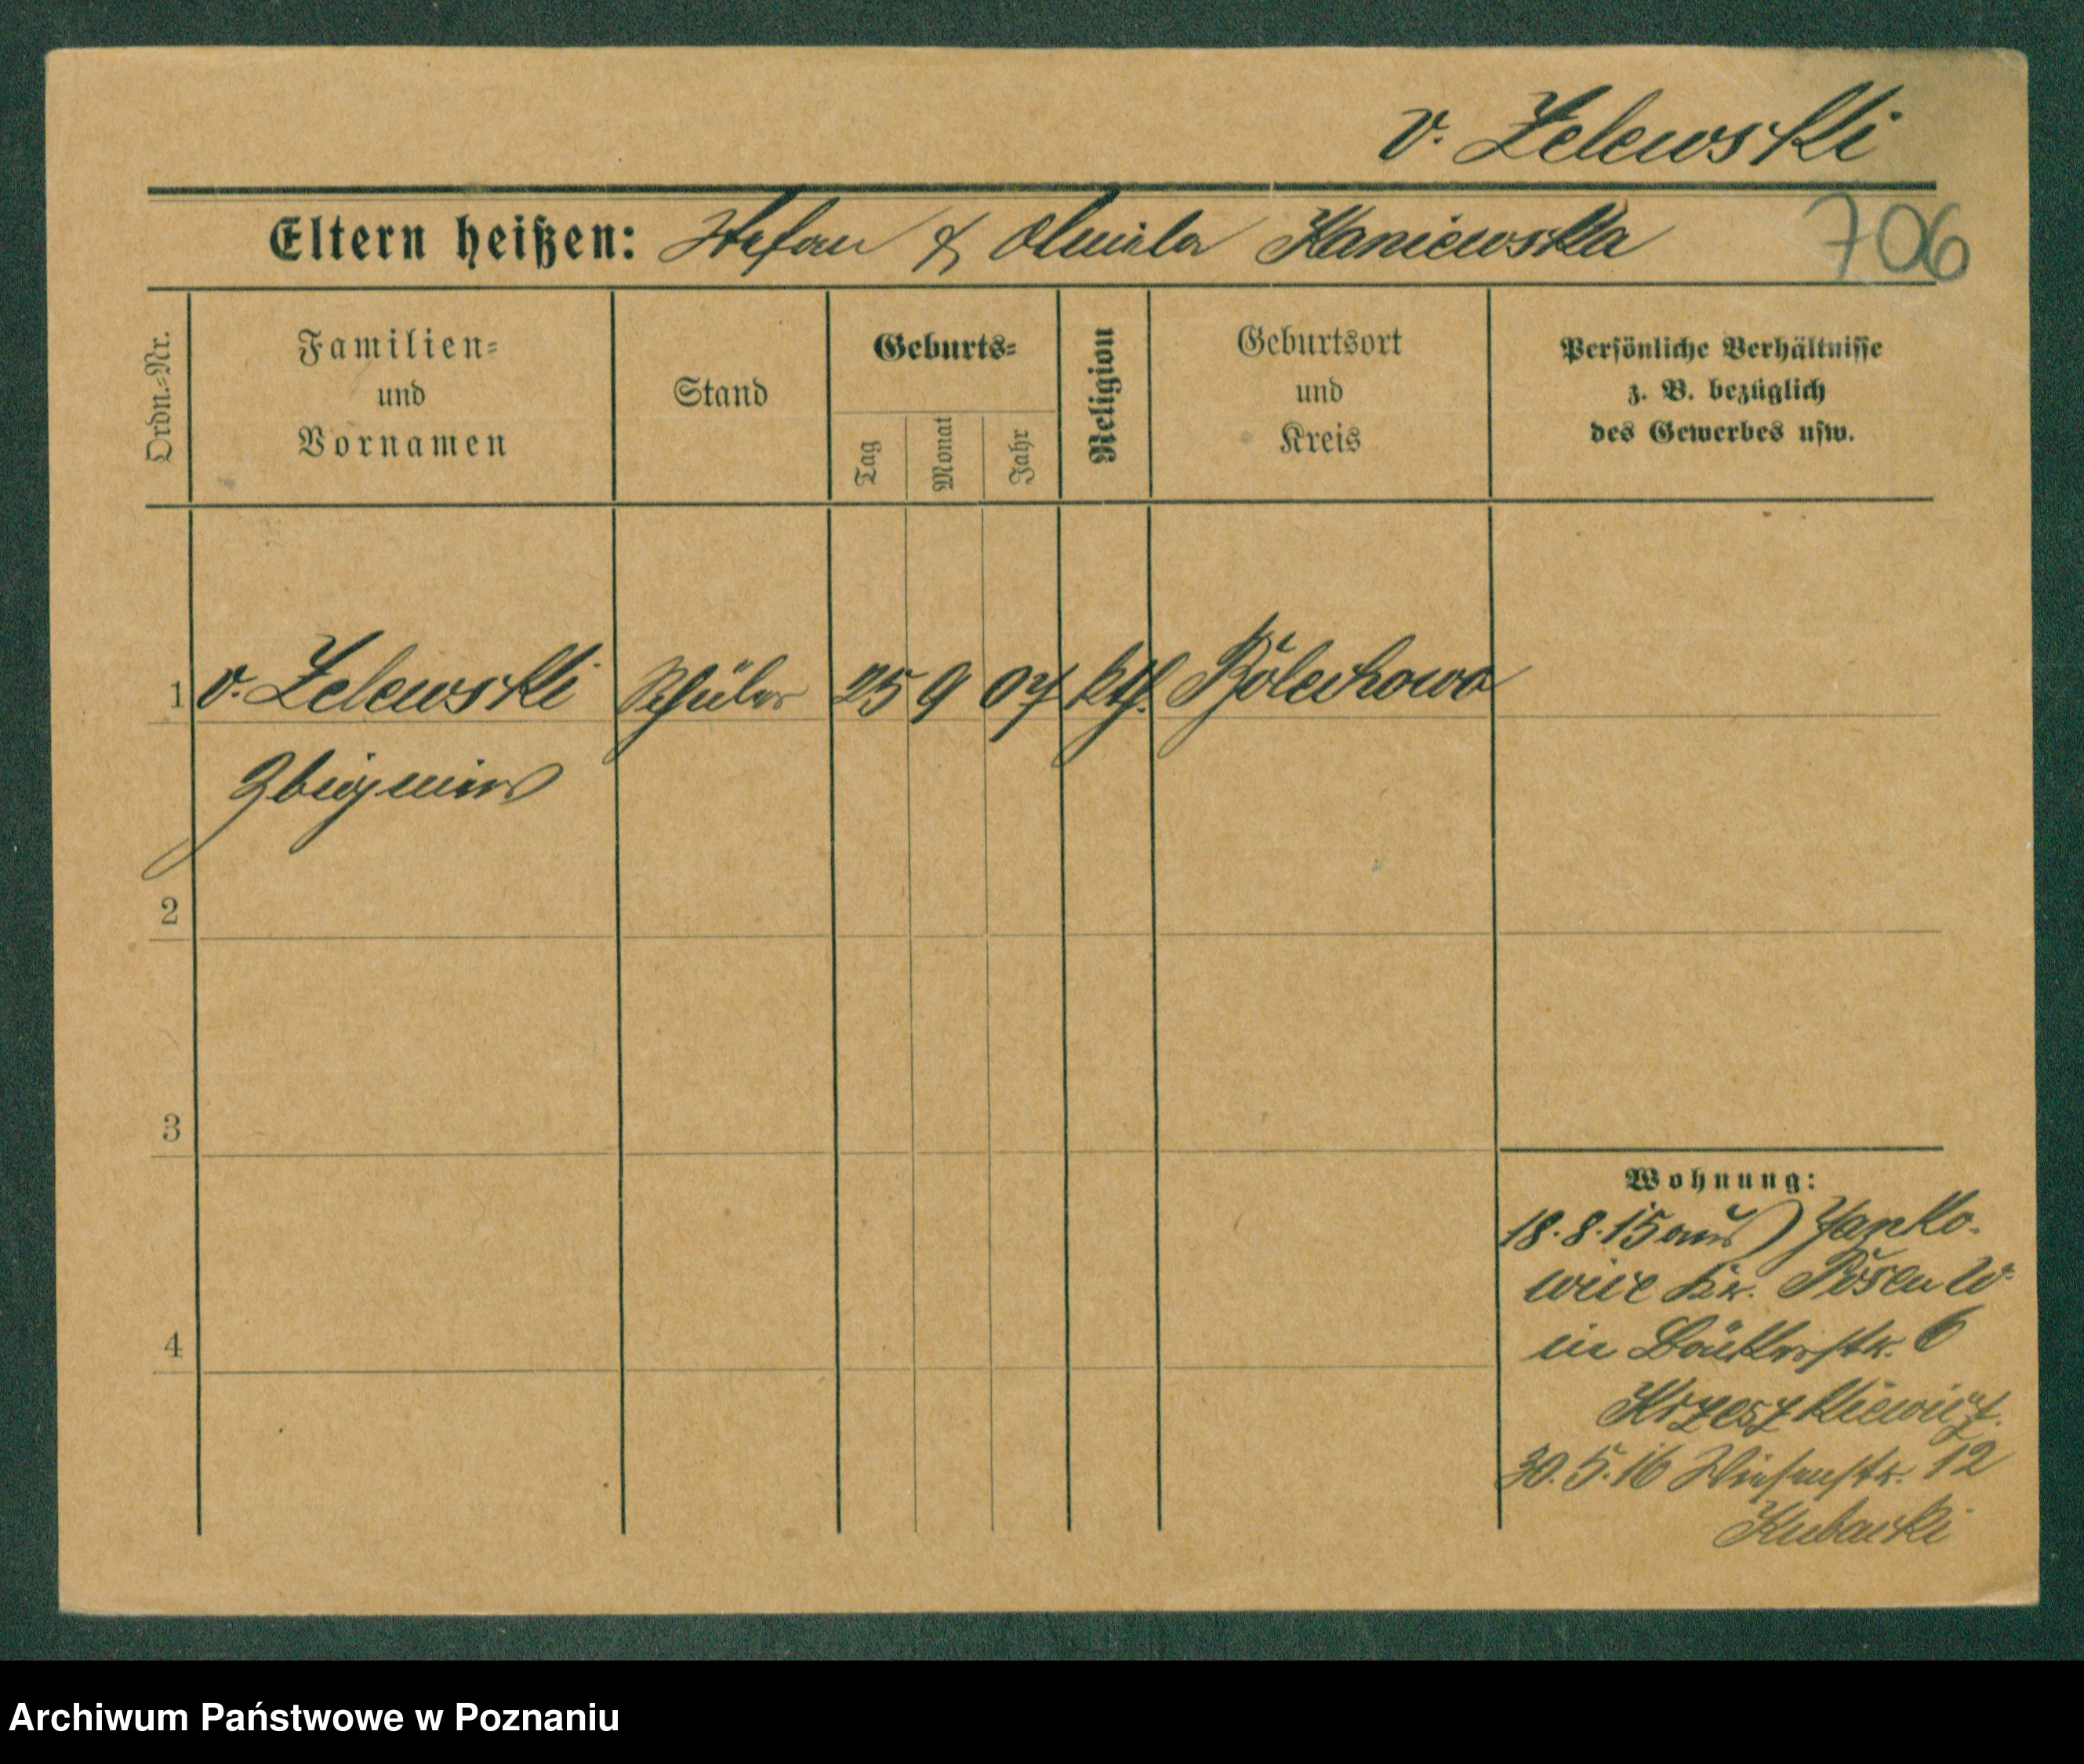 v. Zelewski
Eltern heißen: Stefan & Kaniewska
706
Ordn.=Nr.
Familien=
und
Vornamen
Stand
Geburts=
Tag
Monat
Jahr
Religion
Geburtsort
und
Kreis
Persönliche Verhältnisse
z. B. bezüglich
des Gewerbes usw.
1 v. Zelewski Schüler 25 9 07 kth. Bolechowo
Zbigniew
2
3
4
Wohnung:
18.8.15 aus Janko-
wice Kr. Posen W.
in Bäckerstr. 6
Krzeszkiewicz.
30.5.16 Wiesenstr. 12
Kubacki
Archiwum Państwowe w Poznaniu